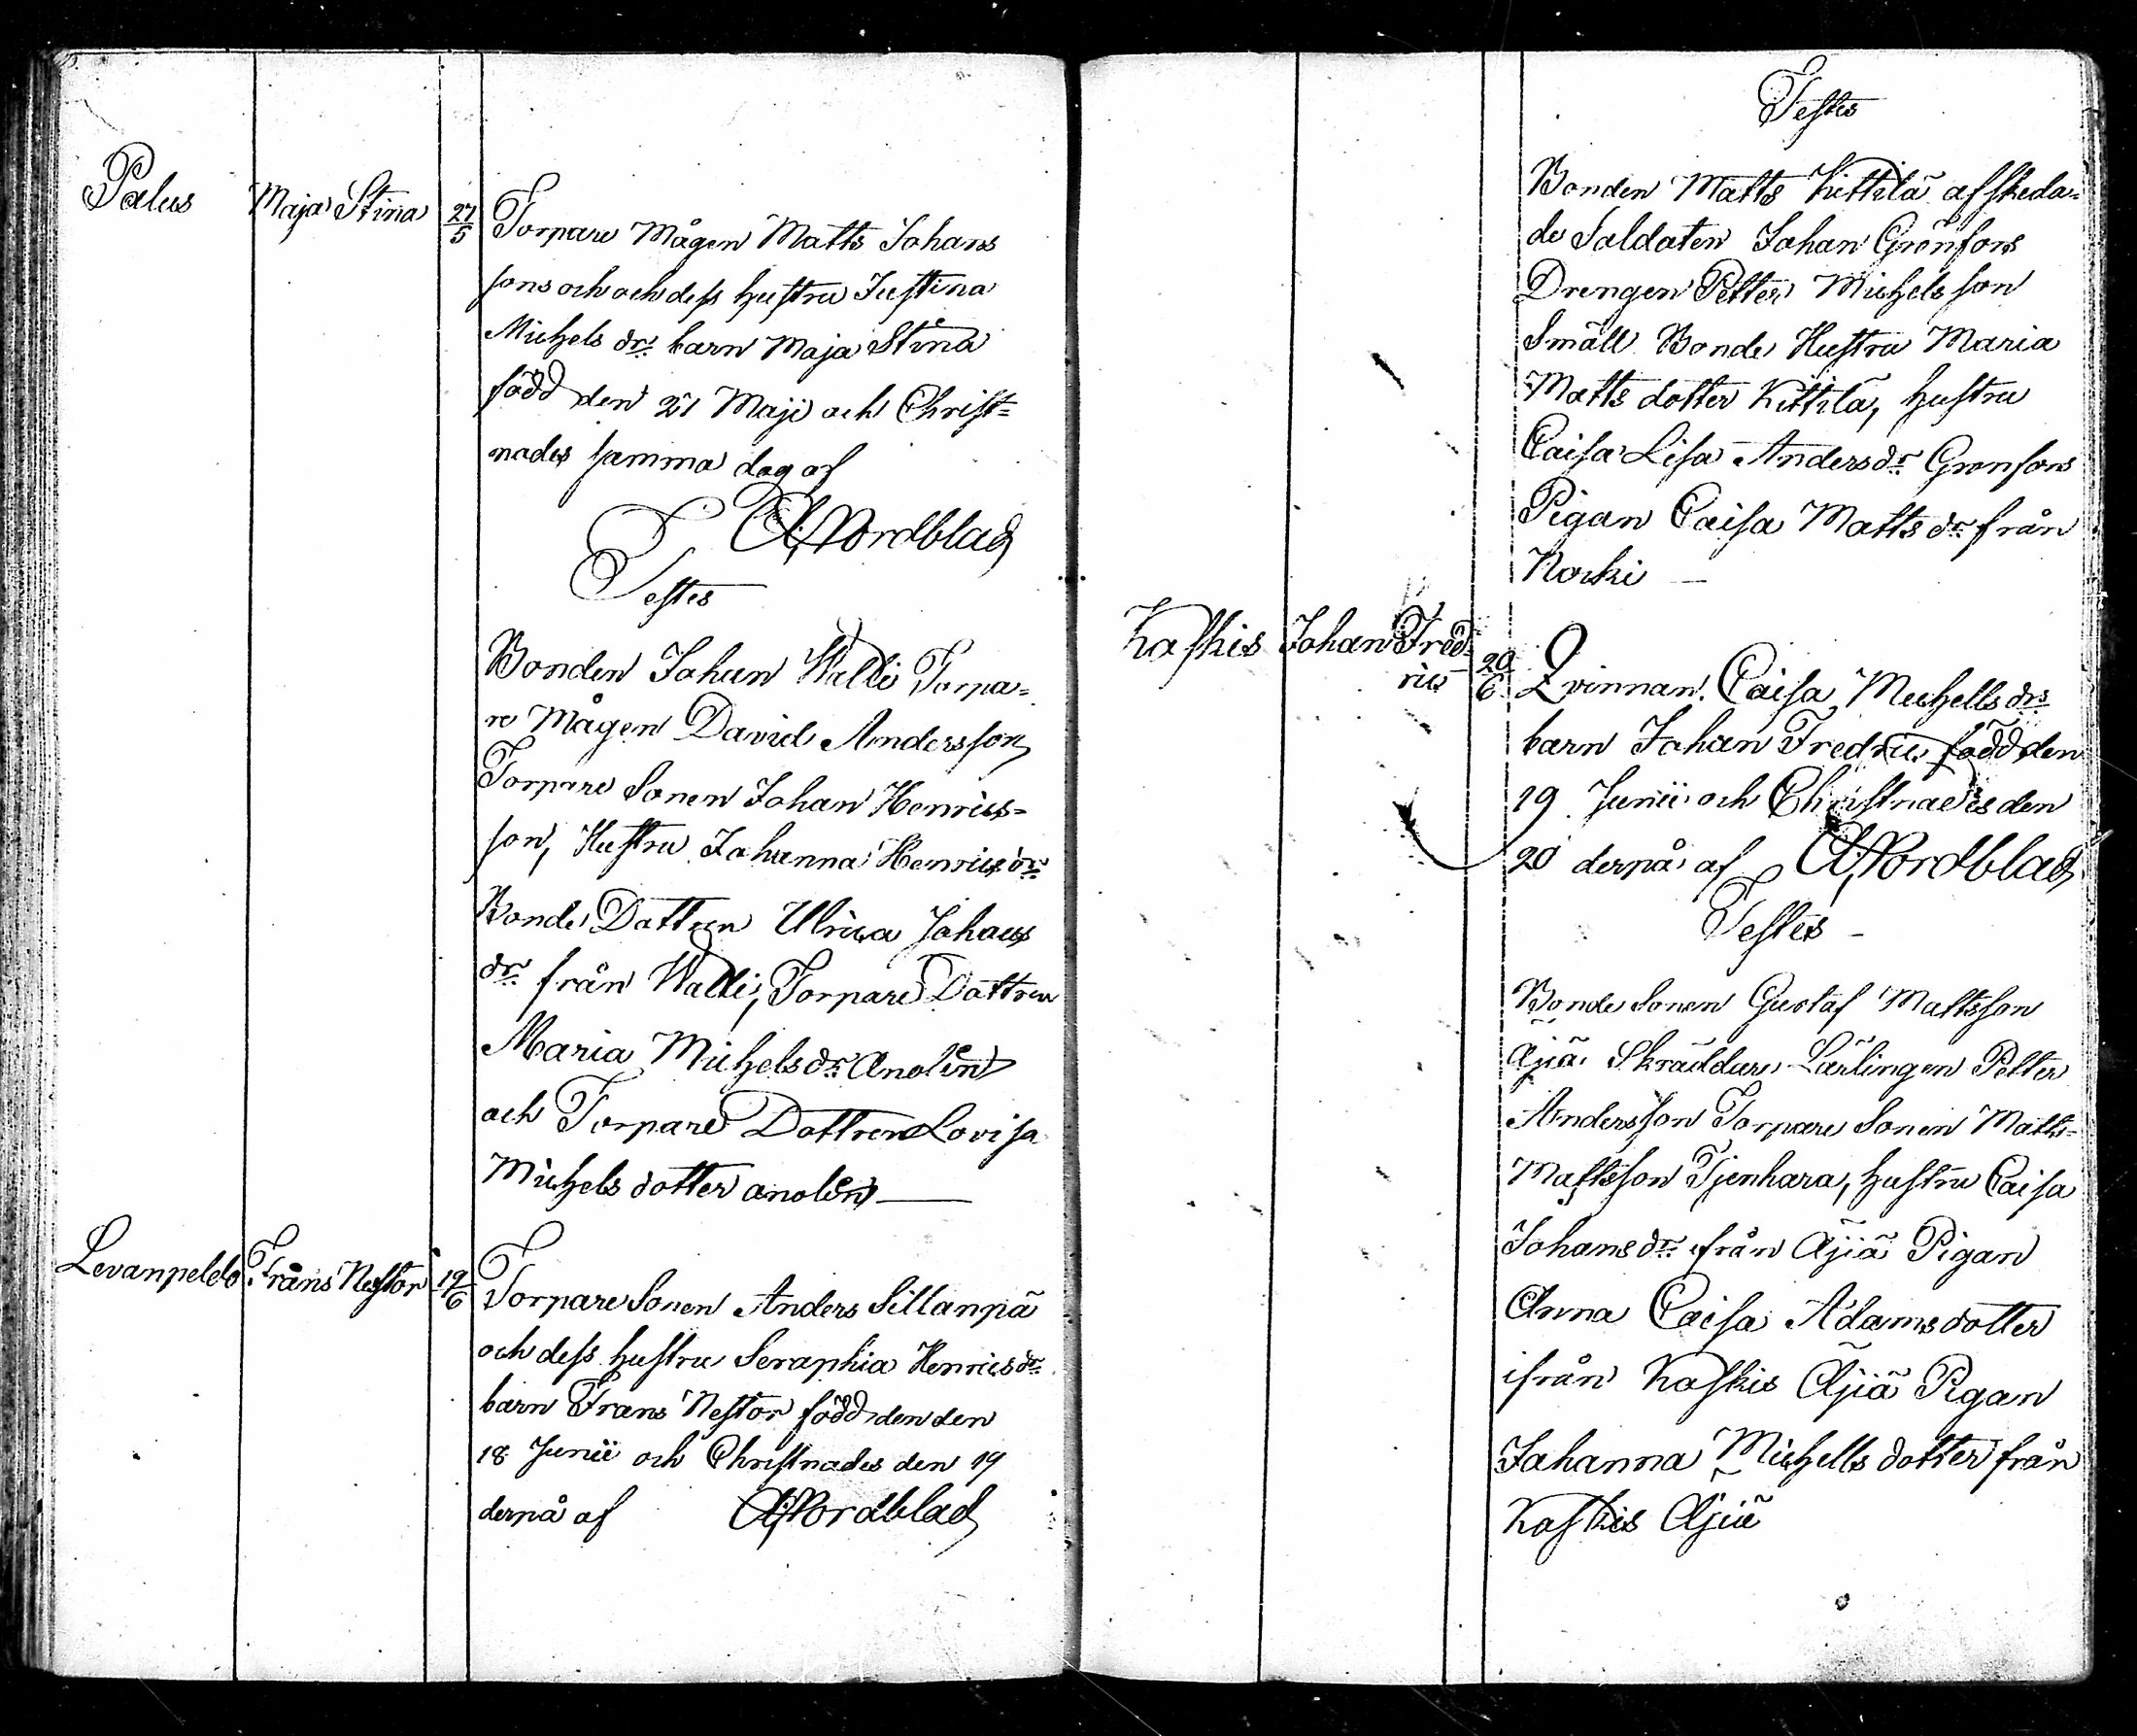 Palus Maja Stina 27/5 Torpare Mågen Matts Johans
sons och och dess hustru Justina
Michels dr: barn Maja Stina
född den 27 Maji och Christ=
nades samma dag af
A. Nordblad
Testes
Bonden Johan Walli Torpa=
re Mågen David Andersson
Torpare Sonen Johan Henrics=
son, Hustru Johanna Henrics dr:
Bonde Dottren Ulrica Johans
dr: från Walli, Torpare Dottren
Maria Michels dr: Anolin
och Torpare Dottren Lovisa
Michels dotter anolin —
Levanpeldo Frans Nestor 19/6 Torpare Sonen Anders Sillanpä
och dess hustru Seraphia Henrics dr:
barn Frans Nestor född den den
18 Junii och Christnades den 19
derpå af A. Nordblad
Testes
Bonden Matts Kittilä afskeda=
de Soldaten Johan Grönfors
Drengen Petter Michelsson
Smäll Bonde Hustru Maria
Matts dotter Kittilä, hustru
Caisa Lisa Anders dr: Gronfors
Pigan Caisa Matts dr: från
Kocki —
Kaskis Johan Fred=
ric 20/6 Qvinnan Caisa Michells dr:
barn Johan Fredric född den
19 Junii och Christnades den
20 derpå af A. Nordblad
Testes —
Bonde Sonen Gustaf Mattsson
Äjiä Skräddare Lärlingen Petter
Andersson Torpare Sonen Matts=
Mattsson Tjenhara, hustru Caisa
Johans dr: från Äjiä Pigan
Anna Caisa Adamsdotter
ifrån Kaskis Äjiä Pigan
Johanna Michells dotter från
Kaskis Äjiä